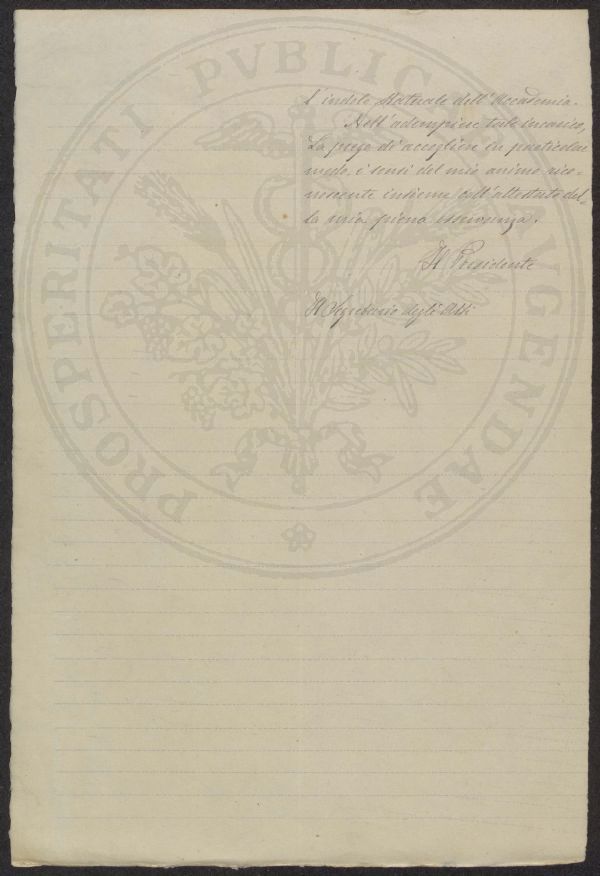 PROSPERITATI PVBLICAE AVGENDAE
l'indole Statuale dell'Accademia.
Nell'adempiere tale incarico,
La prego di accogliere in particolar
modo, i sensi del mio animo rico-
noscente insieme coll'attestato del-
la mia piena osservanza.
Il Presidente
Il Segretario degli Atti